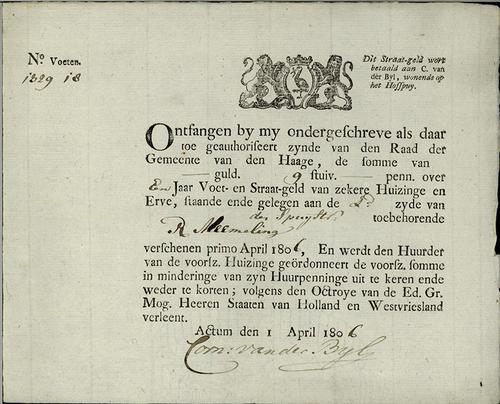 No. Voeten.
1329 18
Dit Straat-geld wort
betaald aan C. van
der Byl, wonende op
het Hofspuy.
Ontfangen by my ondergeschreve als daar
toe geauthoriseert zynde van den Raad der
Gemeente van den Haage, de somme van
guld. 9 stuiv. penn. over
Een Jaar Voet- en Straat-geld van zekere Huizinge en
Erve, staande ende gelegen aan de zyde van
toebehorende
R Meemeling
verschenen primo April 1806, En werdt den Huurder
van de voorsz. Huizinge geördonneert de voorsz. somme
in minderinge van zyn Huurpenninge uit te keren ende
weder te korten; volgens den Octroye van de Ed. Gr.
Mog. Heeren Staaten van Holland en Westvriesland
verleent.
Actum den 1 April 1806
Corn: van der Byl